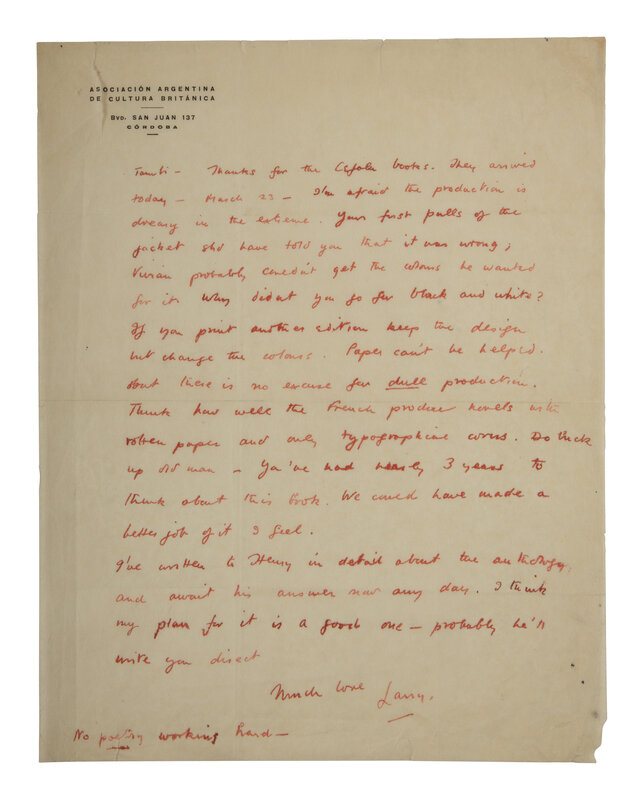 ASOCIACIÓN ARGENTINA
DE CULTURA BRITÁNICA
Bvo. SAN JUAN 137
CÓRDOBA
Tambi – Thanks for the Cefalu books. They arrived
today – March 23 – I'm afraid the production is
dreary in the extreme. Your first pulls of the
jacket shd have told you that it was wrong;
Vivian probably couldn't get the colours he wanted
for it. Why didn't you go for black and white?
If you print another edition keep the design
but change the colours. Paper can't be helped.
But there is no excuse for dull production.
Think how well the French produce novels with
rotten paper and only typographical covers. Do buck
up old man – You've had nearly 3 years to
think about this book. We could have made a
better job of it I feel.
I've written to Henry in detail about the anthology,
and await his answer now any day. I think
my plan for it is a good one – probably he'll
write you direct
Much love Larry.
No poetry working hard –